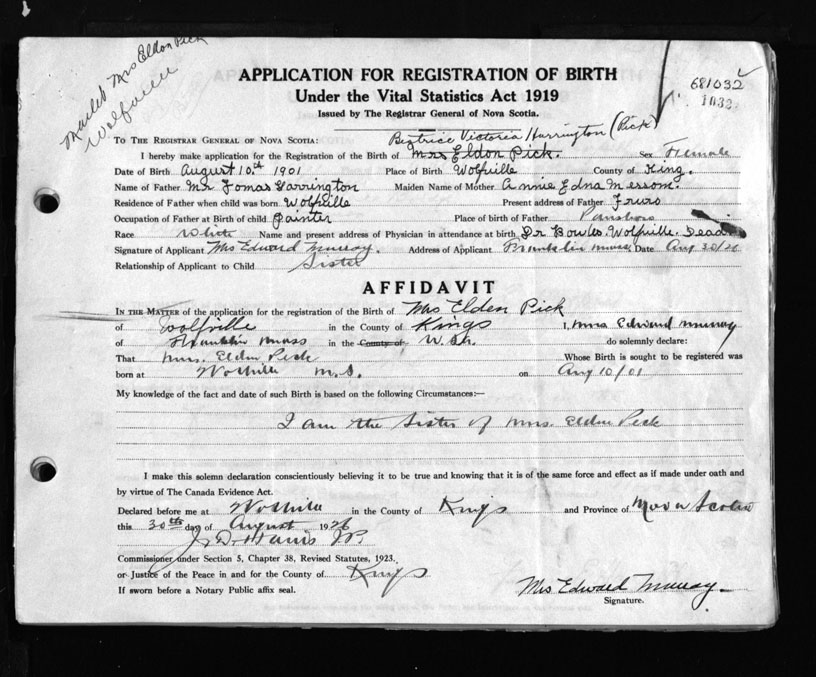 Mailed Mrs Eldon Pick
Wolfville
APPLICATION FOR REGISTRATION OF BIRTH
Under the Vital Statistics Act 1919
Issued by The Registrar General of Nova Scotia.
681032
1032
TO THE REGISTRAR GENERAL OF NOVA SCOTIA:
Beatrice Victoria Harrington (Pick)
I hereby make application for the Registration of the Birth of Mrs Eldon Pick. Sex Female
Date of Birth August 10th 1901 Place of Birth Wolfville County of King.
Name of Father Mr Tomas Harrington Maiden Name of Mother Annie Edna
Residence of Father when child was born Wolfville Present address of Father Truro
Occupation of Father at Birth of child Painter Place of birth of Father
Race White Name and present address of Physician in attendance at birth Dr Bowles Wolfville. Dead
Signature of Applicant Mrs Edward Murray. Address of Applicant Franklin Mass Date Aug 30/26
Relationship of Applicant to Child Sister
AFFIDAVIT
IN THE MATTER of the application for the registration of the Birth of Mrs Elden Pick
of Wolfville in the County of Kings I, Mrs Edward Murray
of Franklin Mass in the County of do solemnly declare:
That Mrs. Eldon Pick Whose Birth is sought to be registered was
born at Wolfville N.S. on Aug 10/01
My knowledge of the fact and date of such Birth is based on the following Circumstances:—
I am the Sister of Mrs. Eldon Pick
I make this solemn declaration conscientiously believing it to be true and knowing that it is of the same force and effect as if made under oath and
by virtue of The Canada Evidence Act.
Declared before me at Wolfville in the County of Kings and Province of Nova Scotia
this 30th day of August 1926
Commissioner under Section 5, Chapter 38, Revised Statutes, 1923,
or Justice of the Peace in and for the County of Kings
If sworn before a Notary Public affix seal.
Mrs Edward Murray.
Signature.